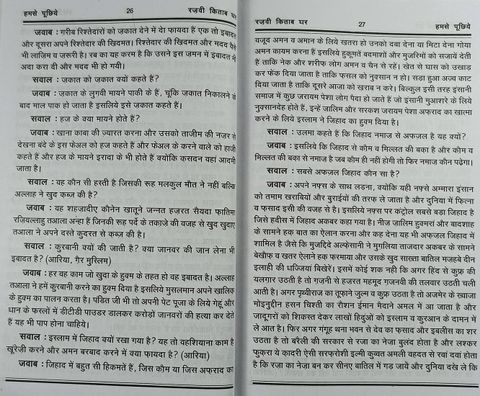 हमसे पूछिये 26 रजवी किताब घर
जवाब : गरीब रिश्तेदारो को जकात देने में दो फायदा हैं एक तो इबादत
और दूसरा अपने रिश्तेदार की खिदमत। रिश्तेदार की खिदमत और मदद वैसे
भी लाजिम व जरूरी है। रब का यह करम है कि उसने इस जमन में इबादत भी
अदा करा दी और मदद भी हो गयी।
सवाल : जकात को जकात क्यों कहते हैं?
जवाब : जकात के लुगवी मायने पाकी के हैं, चूंकि जकात निकालने के
बाद माल पाक हो जाता है इसलिये इसे जकात कहते हैं।
सवाल : हज के क्या मायने होते हैं?
जवाब : खाना काबा की ज्यारत करना और उसको ताजीम की नजर से
देखना बंदे के इस फेअल को हज कहते हैं और फेअल के करने वाले को हाजी
कहते हैं और हज के मायने इरादा के भी होते हैं क्योंकि कसदन वहां आदमी
जाता है।
सवाल : वह कौन सी हस्ती है जिसकी रूह मलकुल मौत ने नहीं बल्कि
अल्लाह ने खुद कब्ज की है?
जवाब : वह शहजादीए कौनेन खातूने जन्नत हजरत सैयदा फातिमा
रजियल्लाहु तआला अन्हा हैं जिनकी रूह पर्दे के तकाजे की वजह से खुद खुदाए
तआला ने अपने दस्ते कुदरत से कब्ज की है।
सवाल : कुरबानी क्यों की जाती है? क्या जानवर की जान लेना भी
इबादत है? (आरिया, गैर मुस्लिम)
जवाब : हर वह काम जो खुदा के हुक्म के तहत हो वह इबादत है। अल्लाह
तआला ने हमें कुरबानी करने का हुक्म दिया है इसलिये मुसलमान अपने खालिक
के हुक्म का पालन करता है। पंडित जी भी तो अपनी पेट पूजा के लिये गेहूं और
धान के फसलों में डीटीडी पाउडर डालकर करोडों जानवरों की हत्या कर देते
हैं यह भी पाप होना चाहिये।
सवाल : इस्लाम में जिहाद क्यों रखा गया है? यह तो वहशियाना काम है
खूंरेजी करने और अमन बरबाद करने में क्या फायदा है? (आरिया)
जवाब : जिहाद में बहुत सी हिकमतें हैं, जिस कौम या जिस अफराद का
हमसे पूछिये 27 रजवी किताब घर
वजूद अमन व अमान के लिये खतरा हो उनको दबा देना या मिटा देना गोया
अमन कायम करना है इसलिये हुकूमतें बदमाशों और मुजरिमों को सजायें देती
हैं ताकि नेक और शरीफ लोग अमन व चैन से रहें। खेत से घास को उखाड
कर फेंक दिया जाता है ताकि फसल को नुक्सान न हो। सडा हुआ अज्व काट
दिया जाता है ताकि दूसरे आजा को खराब न करे। बिल्कुल इसी तरह इंसानी
समाज में कुछ जरायम पेशा लोग पैदा हो जाते हैं जो इंसानी मुआशरे के लिये
नुक्सानदेह होते हैं, इन्हें जालिम और सरकश जरायम पेशा अफराद का खात्मा
करने के लिये इस्लाम ने जिहाद का हुक्म दिया है।
सवाल : उलमा कहते हैं कि जिहाद नमाज से अफजल है यह क्यों?
जवाब : इसलिये कि जिहाद से कौम व मिल्लत की बका है और कौम व
मिल्लत की बका से नमाज है जब कौम ही नहीं होगी तो फिर नमाज कौन पढ़ेगा।
सवाल : सबसे अफजल जिहाद कौन सा है?
जवाब : अपने नफ्स के साथ लडना, क्योंकि यही नफ्से अम्मारा इंसान
को तमाम खराबियों और बुराईयों की तरफ ले जाता है और दुनिया में फित्ना
व फसाद इसी की वजह से है। इसलिये नफ्स पर कंट्रोल सबसे बडा जिहाद है
जिसे हदीस में जिहादे अकबर कहा गया है। नीज जालिम हुक्मरां और बादशाह
के सामने हक बात का ऐलान करना और कह देना यह भी अफजल जिहाद में
शामिल है जैसे कि मुजद्दिदे अल्फेसानी ने मुगलिया ताजदार अकबर के सामने
बेखौफ व खतर ऐलाने हक फरमाया और उसके खुद साख्ता बातिल मजहबे दीन
इलाही की धज्जियां बिखेरीं। इसमें कोई शक नहीं कि अगर हिंद से कुफ्र की
यलगार उठती है तो गजनी से हजरत महमूद गजनवी की तलवार उठती चली
आती है। अगर पृथ्वीराज का तूफाने जुल्म व कुफ्र उठता है तो अजमेर के ख्वाजा
मोइनुद्दीन हसन चिश्ती का रौशन ईमान मैदाने अमल में आ जाता है और
जादूगरों को शिकस्त देकर लाखों हिंदुओं को इस्लाम व कुरआन के दामन में
ले आता है। फिर अगर गंगूह थना भवन से देव का फसाद और इबलीस का शर
उठता है तो बरैली की सरजमीं से रजा का नेजा बुलंद होता है और लश्कर
फुकरा ये कादरी ऐसी सरफ्रोशी इल्मी कुव्वत अमली वहदत से रवां दवां होता
है कि रजा का नेजा बन कर सीनए बातिल में गड जाये और दुनिया देख ले कि